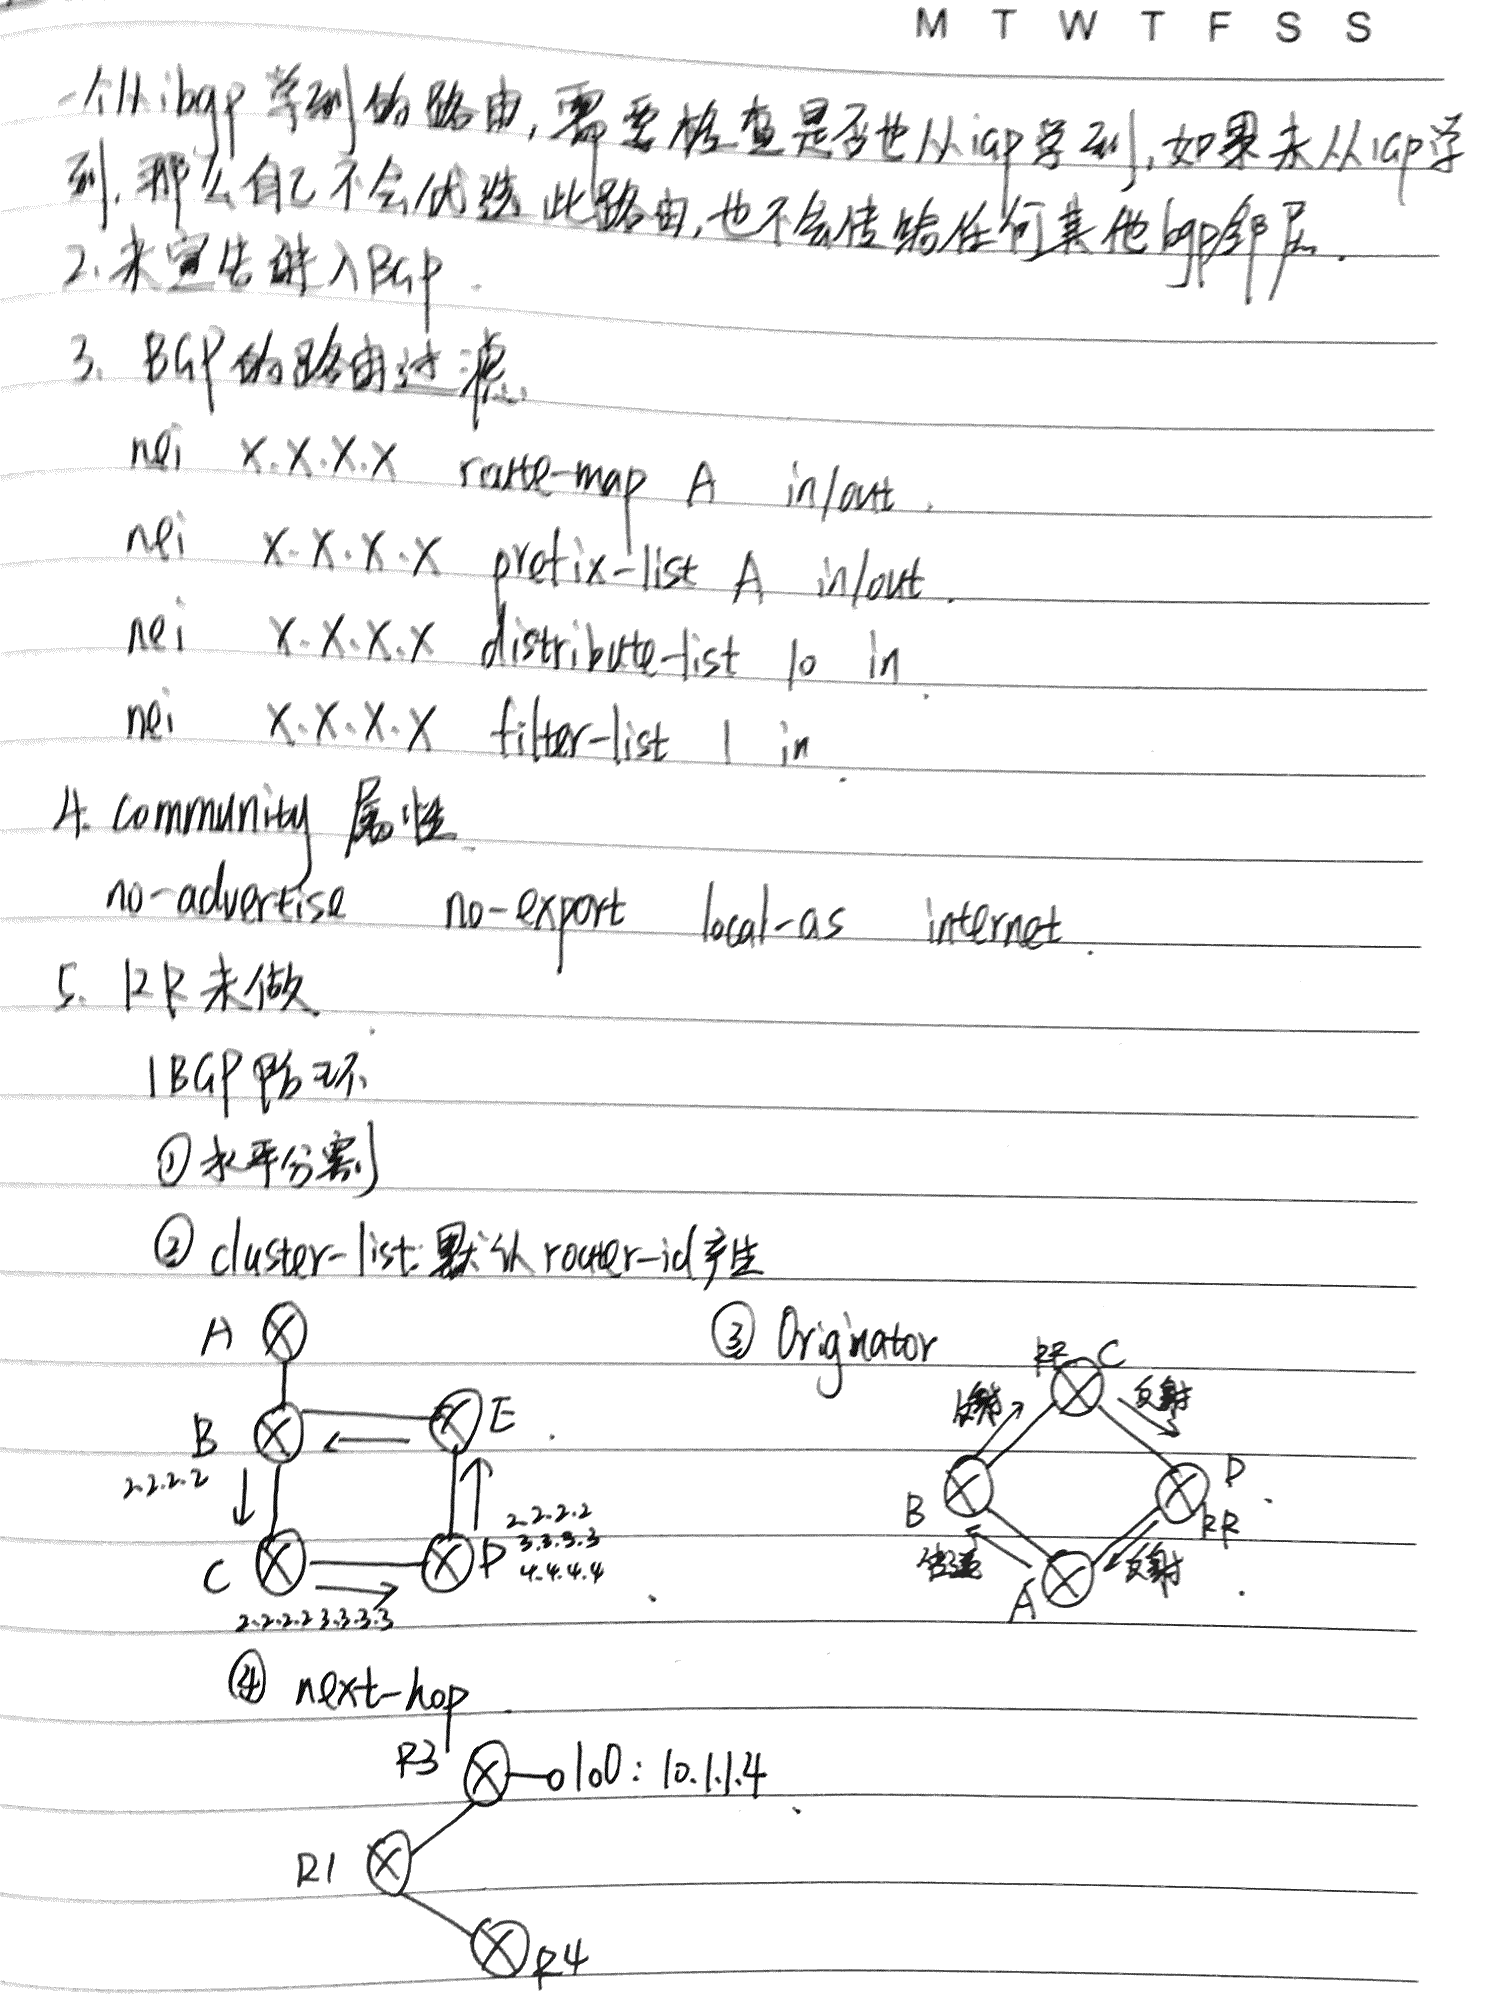 M T W T F S S
一个从ibgp学到的路由,需要检查是否也从igp学到,如果未从igp学
到,那么自己不会优选此路由,也不会传输任何其他bgp邻居.
2.未宣告进入BGP.
3. BGP的路由过滤.
nei X.X.X.X route-map A in/out.
nei X.X.X.X prefix-list A in/out.
nei X.X.X.X distribute-list 10 in.
nei X.X.X.X filter-list 1 in.
4. Community 属性.
no-advertise no-export local-as internet.
5. RR未做.
IBGP防环
①水平分割
②cluster-list:默认router-id产生
③Originator
A
B
E
2.2.2.2
C
D
2.2.2.2
3.3.3.3
4.4.4.4
2.2.2.2 3.3.3.3
RR C
反射
反射
B
D
RR
传递
反射
A
④ next-hop
R3
lo0: 10.1.1.4
R1
R4